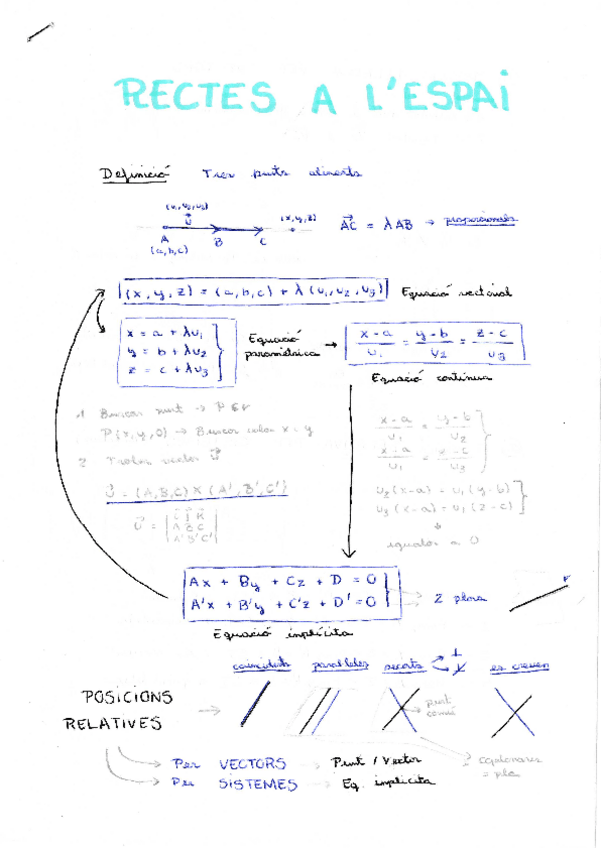 RECTES A L'ESPAI
Definició Tres punts alineats
(u₁, u₂, u₃)
u⃗
(x, y, z)
A B C
(a, b, c)
AC⃗ = λ AB → proporcionals
(x, y, z) = (a, b, c) + λ (u₁, u₂, u₃) Equació vectorial
x = a + λu₁
y = b + λu₂
z = c + λu₃
Equació paramètrica
→ x - a / u₁ = y - b / u₂ = z - c / u₃
Equació contínua
1 Buscar punt → P ∈ r
P(x, y, 0) → Buscar valor x - y
2 Trobar vector u⃗
u⃗ = (A, B, C) X (A', B', C')
u⃗ = | i⃗ j⃗ k⃗ |
A B C
A' B' C'
x - a / u₁ = y - b / u₂
x - a / u₁ = z - c / u₃
u₂ (x - a) = u₁ (y - b)
u₃ (x - a) = u₁ (z - c)
igualar a 0
Ax + By + Cz + D = 0
A'x + B'y + C'z + D' = 0
→ 2 plans
r
Equació implícita
coincidents paral·leles secants ⊥ es creuen
POSICIONS
RELATIVES →
punt
comú
coplonaries
Per VECTORS → Punt / Vector
Per SISTEMES → Eq. implícita